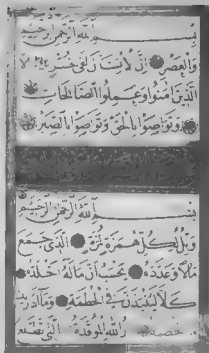 بسم الله الرحمن الرحيم
والعصر ان الانسان لفى خسر الا
الذين امنوا وعملوا الصالحات
وتواصوا بالحق وتواصوا بالصبر
بسم الله الرحمن الرحيم
ويل لكل همزة لمزة الذى جمع
مالا وعدده يحسب ان ماله اخلده
كلا لينبذن فى الحطمة وما ادريك
الله الموقدة التى تطلع